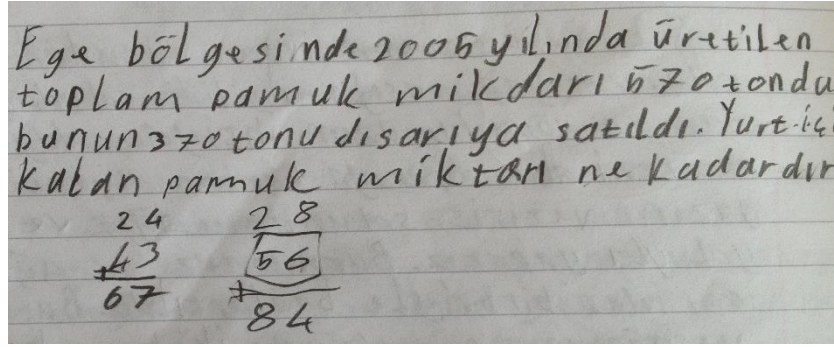 Ege bölgesinde 2005 yılında üretilen
toplam pamuk mikdarı 570 tondu
bunun 370 tonu dısarıya satıldı. Yurt-içi
Kalan pamuk miktarı ne kadardır
24 28
+43 56
67 + 84